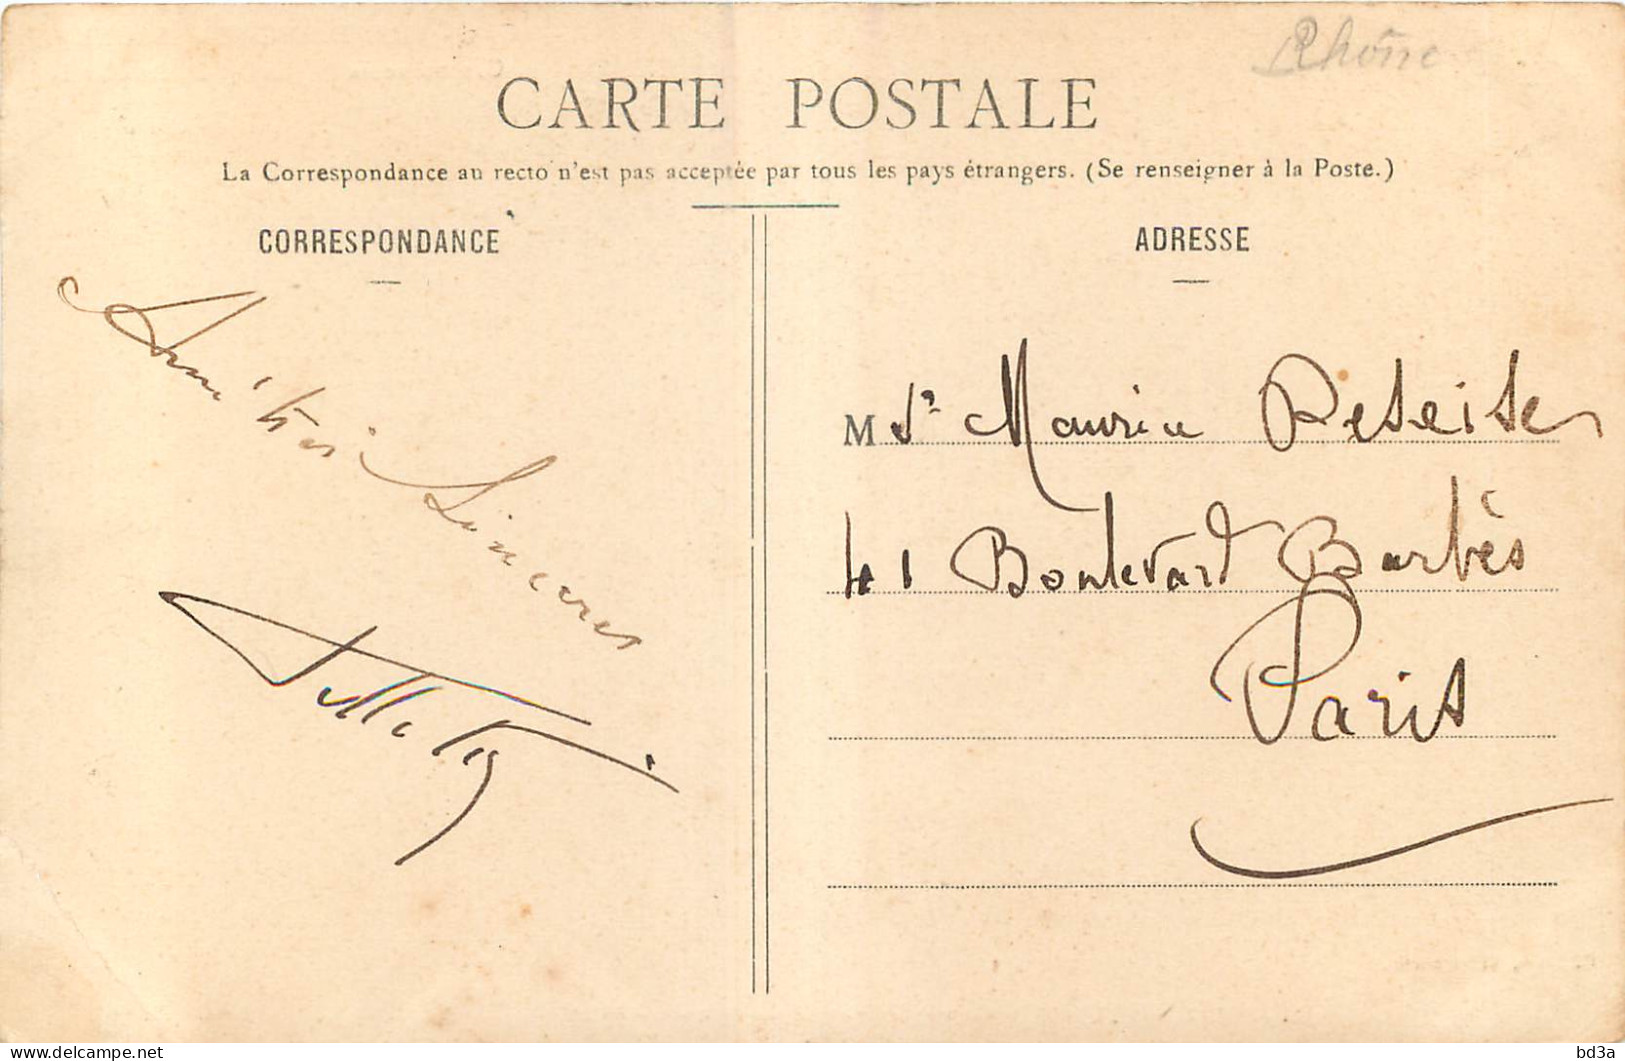 Rhône
CARTE POSTALE
La Correspondance au recto n'est pas acceptée par tous les pays étrangers. (Se renseigner à la Poste.)
CORRESPONDANCE
ADRESSE
Amitiés Sincères
M Sr Maurice
41 Boulevard Barbès
Paris
delcampe.net
bd3a